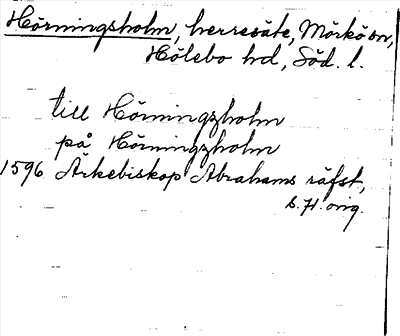 Hörningsholm, herresäte, Mörkö sn,
Hölebo hd, Söd. l.
till Hörningzholm
på Hörningzholm
1596 Ärkebiskop Abrahams räfst,
s. 71. orig.